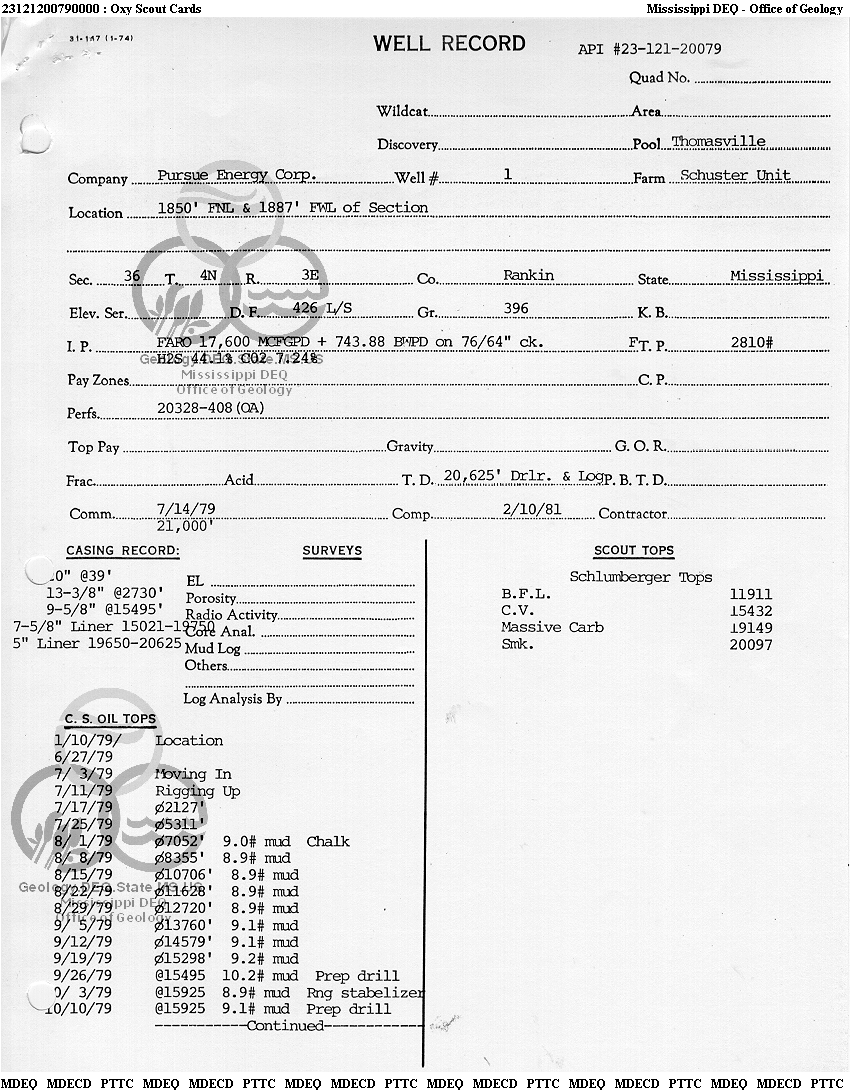 23121200790000 : Oxy Scout Cards Mississippi DEQ - Office of Geology
31-147 (1-74)
WELL RECORD API #23-121-20079
Quad No.
Wildcat Area
Discovery Pool Thomasville
Company Pursue Energy Corp. Well # 1 Farm Schuster Unit
Location 1850' FNL & 1887' FWL of Section
Sec. 36 T. 4N R. 3E Co. Rankin State Mississippi
Elev. Ser. D. F. 426 L/S Gr. 396 K. B.
I. P. FARO 17,600 MCFGPD + 743.88 BWPD on 76/64" ck. F T. P. 2810#
H2S 44.11 CO2 7.24%
Geology.DEQ.State.MS.US
Mississippi DEQ
Pay Zones C. P.
Office of Geology
Perfs. 20328-408(OA)
Top Pay Gravity G. O. R.
Frac. Acid T. D. 20,625' Drlr. & Log P. B. T. D.
Comm. 7/14/79 Comp. 2/10/81 Contractor
21,000'
CASING RECORD: SURVEYS SCOUT TOPS
0" @39' EL Schlumberger Tops
13-3/8" @2730' Porosity B.F.L. 11911
9-5/8" @15495' Radio Activity C.V. 15432
7-5/8" Liner 15021-19750 Core Anal. Massive Carb 19149
5" Liner 19650-20625 Mud Log Smk. 20097
Others
Log Analysis By
C. S. OIL TOPS
1/10/79/ Location
6/27/79
7/ 3/79 Moving In
7/11/79 Rigging Up
7/17/79 ø2127'
7/25/79 ø5311'
8/ 1/79 ø7052' 9.0# mud Chalk
8/ 8/79 ø8355' 8.9# mud
8/15/79 ø10706' 8.9# mud
Geology.DEQ.State.MS.US
8/22/79 ø11628' 8.9# mud
Mississippi DEQ
8/29/79 ø12720' 8.9# mud
Office of Geology
9/ 5/79 ø13760' 9.1# mud
9/12/79 ø14579' 9.1# mud
9/19/79 ø15298' 9.2# mud
9/26/79 @15495 10.2# mud Prep drill
0/ 3/79 @15925 8.9# mud Rng stabelizer
10/10/79 @15925 9.1# mud Prep drill
-----------Continued------------
MDEQ MDECD PTTC MDEQ MDECD PTTC MDEQ MDECD PTTC MDEQ MDECD PTTC MDEQ MDECD PTTC MDEQ MDECD PTTC